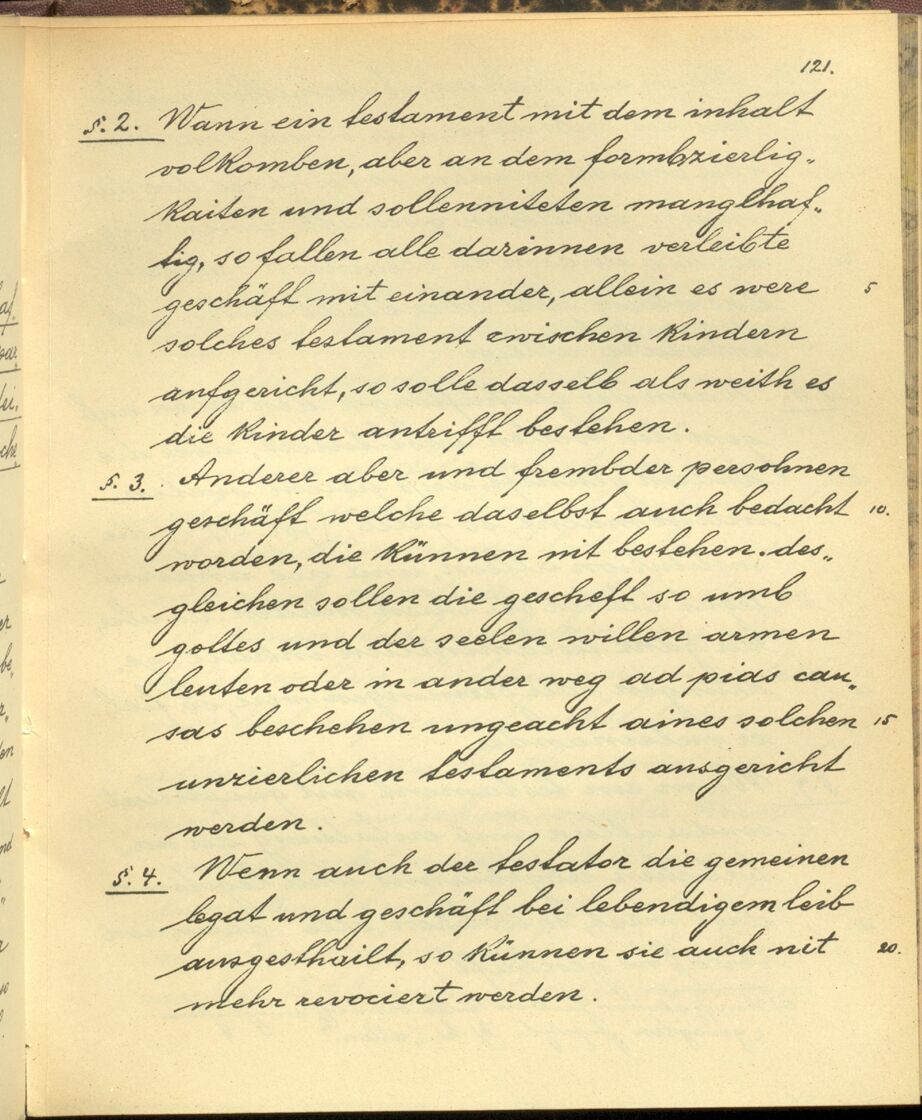 121.
§. 2. Wann ein testament mit dem inhalt
volkomben, aber an dem formbzierlig„
kaiten und sollenniteten manglhaf„
tig, so fallen alle darinnen verleibte
geschäft mit einander, allein es were 5
solches testament zwischen kindern
aufgericht, so solle dasselb als weith es
die kinder antrifft bestehen.
§. 3. Anderer aber und frembder persohnen
geschäft welche daselbst auch bedacht 10.
worden, die künnen nit bestehen. des„
gleichen sollen die gescheft so umb
gottes und der seelen willen armen
leuten oder in ander weg ad pias cau„
sas beschehen ungeacht aines solchen 15
unzierlichen testaments ausgericht
werden.
§. 4. Wenn auch der testator die gemeinen
legat und geschäft bei lebendigem leib
ausgesthailt, so künnen sie auch nit 20.
mehr revociert werden.